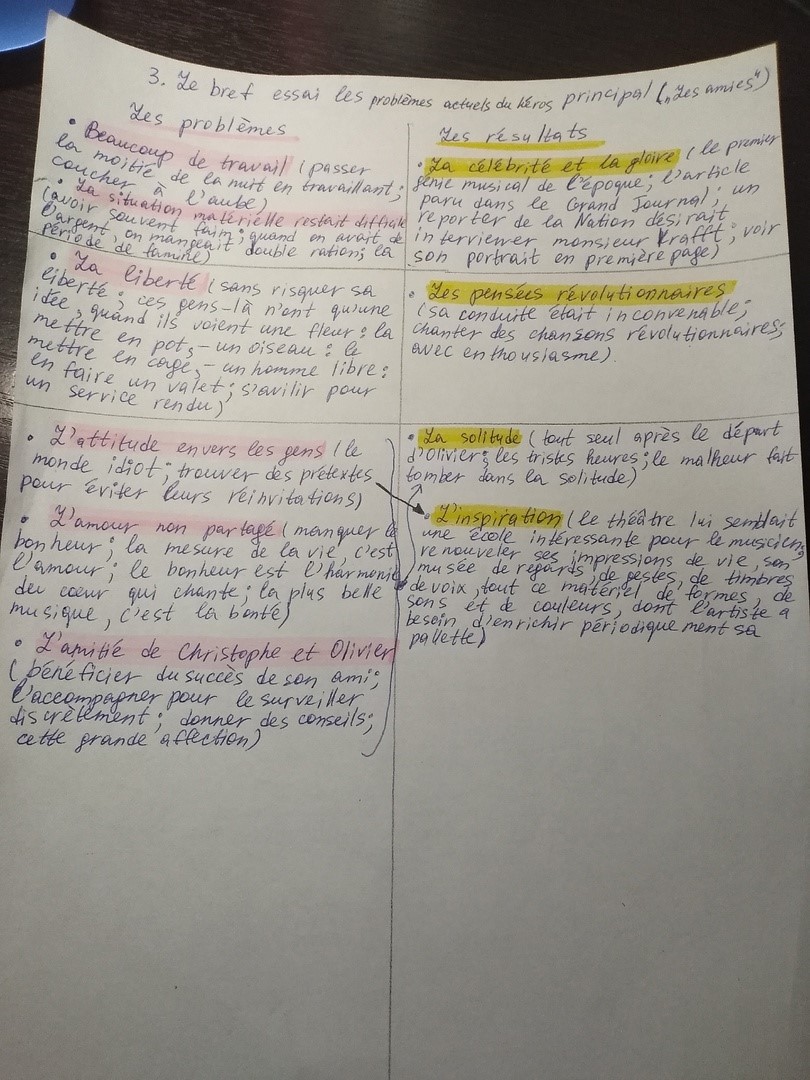 3. Le bref essai les problèmes actuels du héros principal („Les amies")
Les problèmes
• Beaucoup de travail (passer
la moitié de la nuit en travaillant;
coucher à l'aube)
• La situation matérielle restait difficile
(avoir souvent faim; quand on avait de
l'argent, on mangeait double ration; la
période de famine)
Les résultats
• La célébrité et la gloire (le premier
génie musical de l'époque; l'article
paru dans le Grand Journal; un
reporter de la Nation désirait
interviewer monsieur Krafft; voir
son portrait en première page)
• La liberté (sans risquer sa
liberté; ces gens-là n'ont qu'une
idée, quand ils voient une fleur: la
mettre en pot, – un oiseau: le
mettre en cage, – un homme libre:
en faire un valet; s'avilir pour
un service rendu)
• Les pensées révolutionnaires
(sa conduite était inconvenable;
chanter des chansons révolutionnaires;
avec enthousiasme)
• L'attitude envers les gens (le
monde idiot; trouver des prétextes
pour éviter leurs réinvitations)
• L'amour non partagé (manquer le
bonheur; la mesure de la vie, c'est
l'amour; le bonheur est l'harmonie
du cœur qui chante; la plus belle
musique, c'est la bonté)
• L'amitié de Christophe et Olivier
(bénéficier du succès de son ami;
l'accompagner pour le surveiller
discrètement; donner des conseils;
cette grande affection)
• La solitude (tout seul après le départ
d'Olivier; les tristes heures; le malheur fait
tomber dans la solitude)
• L'inspiration (le théâtre lui semblait
une école intéressante pour le musicien;
renouveler ses impressions de vie, son
musée de regards, de gestes, de timbres
de voix, tout ce matériel de formes, de
sons et de couleurs, dont l'artiste a
besoin d'enrichir périodiquement sa
pallette)